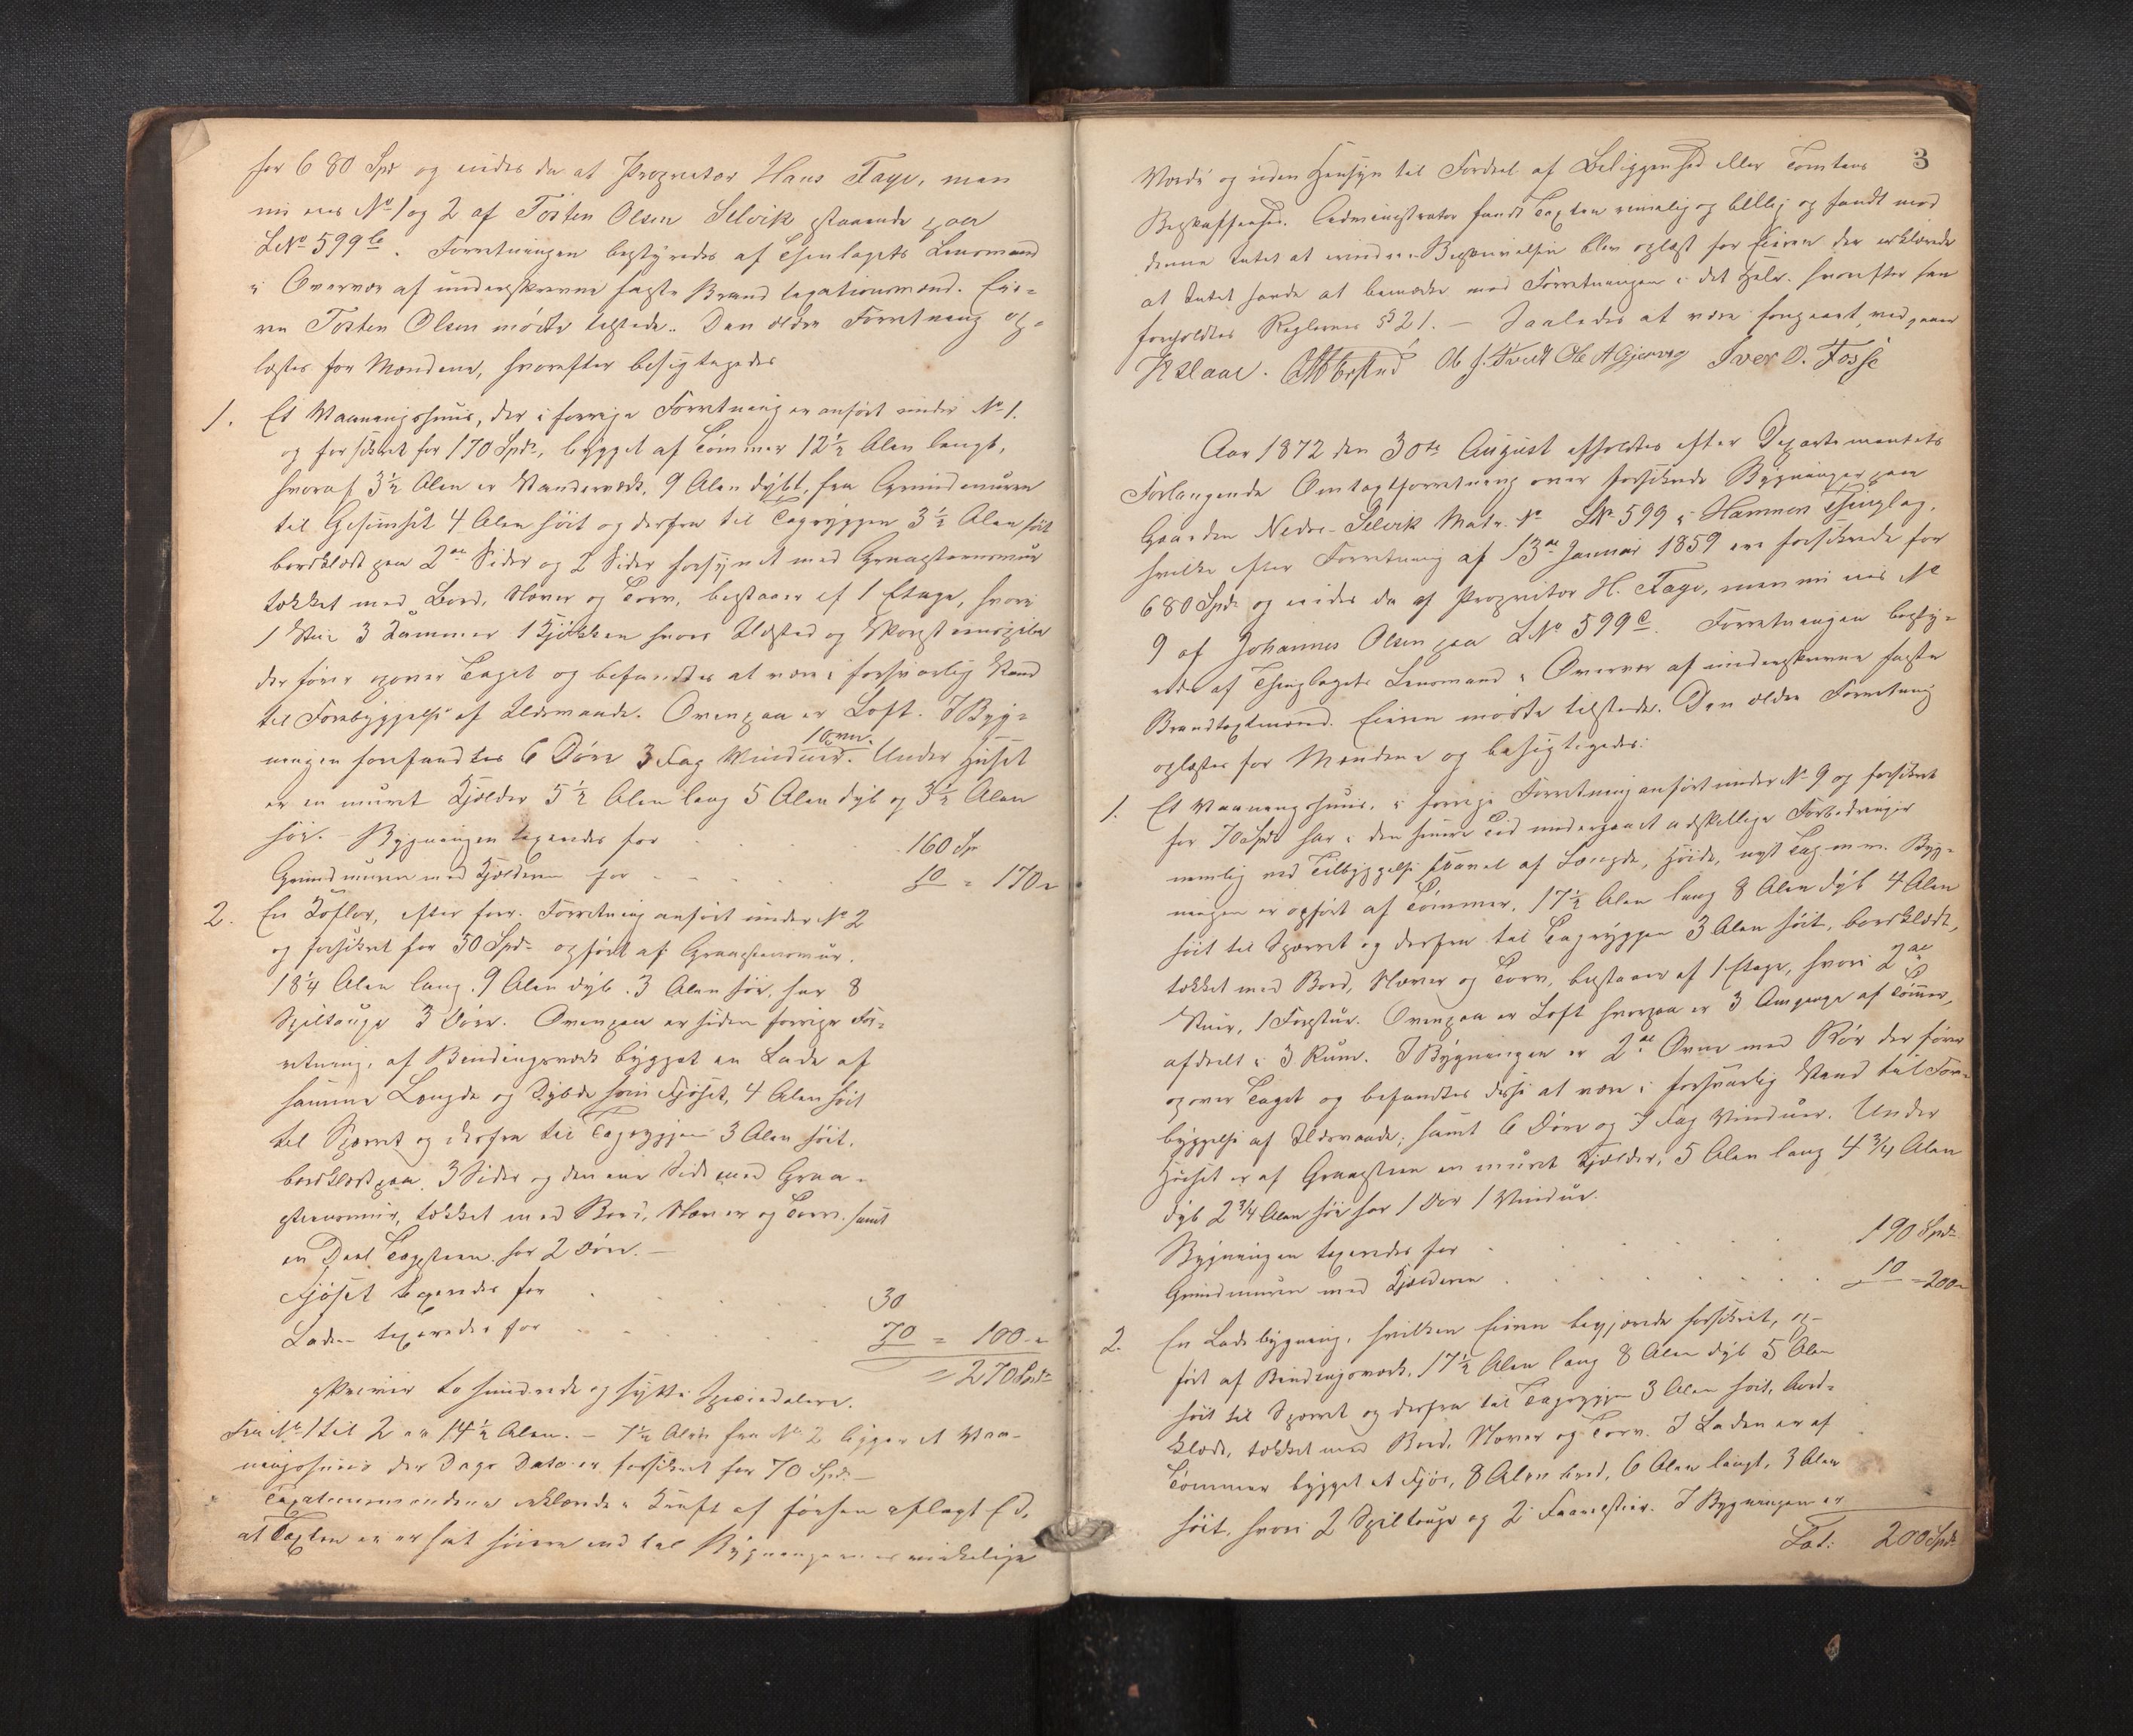 for 680 Spd og eiedes da af Proprietær Hans Fage, men
nu eies No 1 og 2 af Tosten Olsen Selvik staaende paa
LNo 599 b. Forretningen bestyredes af Thinlagets Lensmand
i Overvær af underskrevne faste Brandtaxationsmænd. Eie-
ren Tosten Olsen mødte tilstede. Den ældre Forretning op-
læstes for Mændene, hvorefter besigtigedes
1. Et Vaaningshuus, der i forrige Forretning er anført under No 1.
og forsikret for 170 Spd, bygget af Tømmer 12½ Alen langt,
hvoraf 3½ Alen er Bindværk, 9 Alen dybt, fra Grundmuren
til Gesimset 4 Alen høit og derfra til Tagryggen 3½ Alen høit
bordklædt paa 2de Sider og 2 Sider forsynet med Graasteensmuur
tækket med Bord, Næver og Torv, bestaaer af 1 Etage, hvori
1 Stue 3 Kammer 1 Kjøkken hvori Ildsted og Skorsteenspibe
der fører igjennem Taget og befandtes at være i forsvarlig Stand
til Forebyggelse af Ildsvaade. Ovenpaa er Loft. I Byg-
1 Ovn.
ningen forefandtes 6 Døre 3 Fag Vinduer. Under Huset
er en muret Kjælder 5½ Alen lang 5 Alen dyb og 3½ Alen
høi. - Bygningen taxeredes for . . . 160 Sp
Grundmuren med Kjælderen for . . . 10 = 170 "
2. En Løflor, efter forr. Forretning anført under No 2
og forsikret for 50 Spd opført af Graasteensmuur.
18¼ Alen lang. 9 Alen dyb. 3 Alen høi, har 8
Spiltouge 3 Døre. Ovenpaa er siden forrige For-
retning, af Bindingsværk bygget en Lade af
samme Længde og Dybde som Fjøset, 4 Alen høit
til Sperret og derfra til Tagryggen 3 Alen høit.
bordklædt paa 3 Sider og den ene Side med Graa-
steensmuur, tækket med Bord, Næver og Torv. samt
en Deel Tagsteen. har 2 Døre. -
Fjøset taxeredes for . . . 30
Laden taxeredes for . . . 70 = 100 "
= 270 Spd
skriver to hundrede og sytti Speciedalere.
Fra No 1 til 2 er 14½ Alen. - 7½ Alen fra No 2 ligger et Vaa-
ningshuus der Dags Dato er forsikret for 70 Spd -
Taxationsmændene erklærede i Kraft af forhen aflagt Ed,
at Taxten ei er sat høiere end til Bygningernes virkelige
3
Værdi og uden Hensyn til Fordeel af Beliggenhed eller Tomtens
Beskaffenhed. Administrator fandt Taxten rimelig og billig og fandt mod
denne Intet at erindre. Beskrivelsen blev oplæst for Eieren der erklærede
at Intet havde at bemærke mod Forretningen i det Hele. hvorefter han
foreholdtes Reglernes § 21. - Saaledes at være foregaaet, vedgaaer
Ole J. Tvedt Ole A Gjerveg Iver O. Fosse
Aar 1872 den 30te August afholdtes efter Departementets
Forlangende Omtaxtforretning over forsikrede Bygninger paa
Gaarden Nedre-Selvik Matr. No LNo 599 i Hammers Thinglag,
hvilke efter Forretning af 13de Januar 1859 ere forsikrede for
680 Spd og eiedes da af Proprietær H. Fage, men nu eies No
9 af Johannes Olsen paa LNo 599 c. Forretningen besty-
redes af Thinglagets Lensmand i Overvær af underskrevne faste
Brandtaxtmænd. Eieren mødte tilstede. Den ældre Forretning
oplæstes for Mændene og besigtigedes:
1. Et Vaaningshuus, i forrige Forretning anført under No 9 og forsikret
for 70 Spd har i den senere Tid undergaaet adskillige Forbedringer
nemlig ved Tilbyggelse saavel af Længde, Høide, nyt Tag m.m. Byg-
ningen er opført af Tømmer, 17½ Alen lang 8 Alen dyb 4 Alen
høit til Sperret og derfra til Tagryggen 3 Alen høit, bordklædt,
tækket med Bord, Næver og Torv, bestaaer af 1 Etage, hvori 2de
Stuer, 1 Forstue. Ovenpaa er Loft hvorpaa er 3 Omgange af Tømmer,
afdeelt i 3 Rum. I Bygningen er 2de Ovne med Rør der fører
over Taget og befandtes disse at være i forsvarlig Stand til Fore-
byggelse af Ildsvaade; samt 6 Døre og 7 Fag Vinduer. Under
Huset er af Graasteen en muret Kjælder, 5 Alen lang 4¾ Alen
dyb 2¾ Alen høi har 1 Dør 1 Vindue.
Bygningen taxeredes for . . . 190 Spd
Grundmuren med Kjælderen . . . 10 = 200 "
2. En Ladebygning, hvilken Eieren begjærede forsikret, op-
ført af Bindingsværk, 17½ Alen lang 8 Alen dyb 5 Alen
høit til Sperret og derfra til Tagryggen 3 Alen høit, bord-
klædt, tækket med Bord, Næver og Torv. I Laden er af
Tømmer bygget et Fjøs, 8 Alen bred, 6 Alen langt, 3 Alen
høit, hvori 2 Spiltouge og 2 Faarestier. I Bygningen er
Lat. 200 Spd